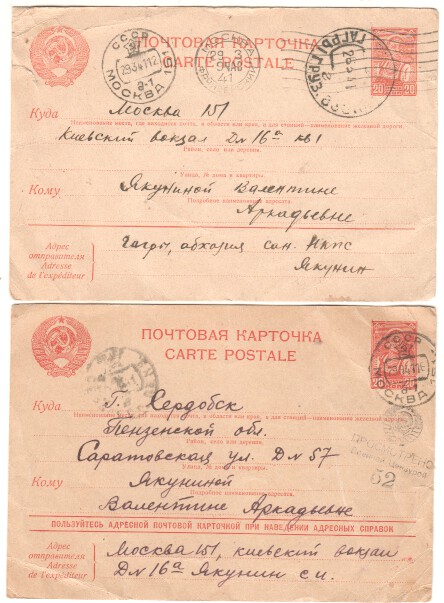 ПОЧТОВАЯ КАРТОЧКА
CARTE POSTALE
СССР
МОСКВА 151
29.3.41
20 20
Куда Москва 151
Наименование места, где находится почта, и области или края, а для станций—наименование железной дороги
Киевский вокзал Дм 16а кв 1
Район, село или деревня.
Улица, № дома и квартиры.
Кому Якуниной Валентине
Подробное наименование адресата.
Аркадьевне
Адрес отправителя
Adresse de l'expéditeur
Гагры, абхазия сан. Нкпс
Якунин
ПОЧТОВАЯ КАРТОЧКА
CARTE POSTALE
СССР
МОСКВА
20
Куда Г. Сердобск
Наименование места, где находится почта, и области или края, а для станций—наименование железной дороги
Пензенской обл.
Район, село или деревня.
Саратовская ул. Дм 57
Улица, № дома и квартиры.
Кому Якуниной
Подробное наименование адресата.
Валентине Аркадьевне
ПОЛЬЗУЙТЕСЬ АДРЕСНОЙ ПОЧТОВОЙ КАРТОЧКОЙ ПРИ НАВЕДЕНИИ АДРЕСНЫХ СПРАВОК
52
Адрес отправителя
Adresse de l'expéditeur
Москва 151, киевский вокзал
Дм 16а Якунин с.и.